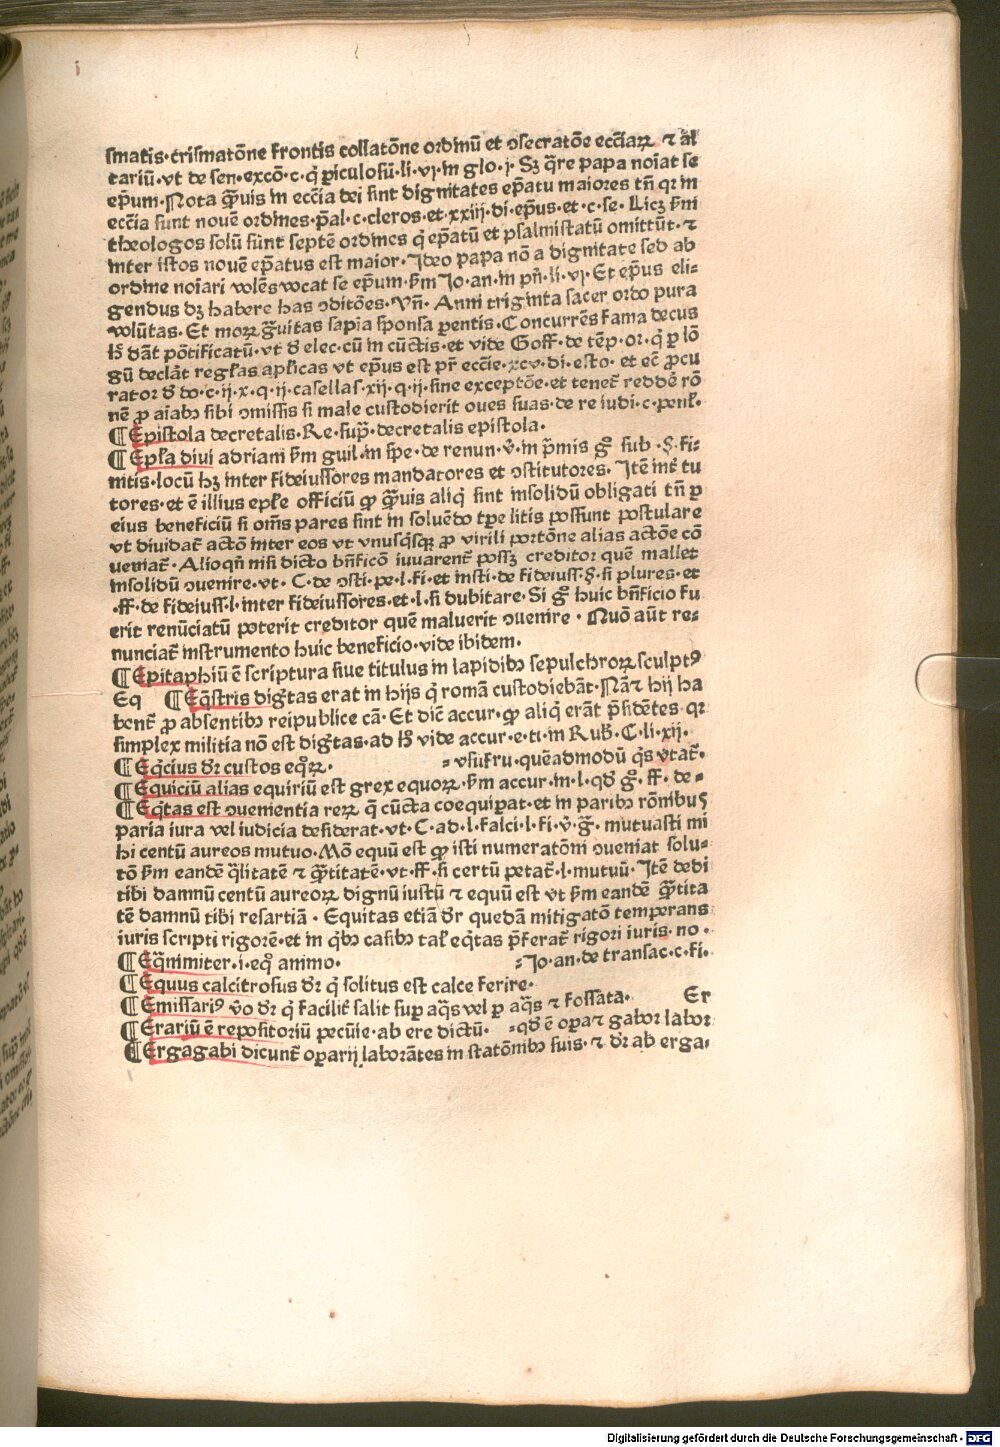 smatis·crismatōne frontis collatōne ordinū et ɔsecratōe ecciaꝝ ⁊ al
tariū·vt de sen·excō·c·q̇ ꝑiculosū·li·vj·in glo·j· Sꝫ q̄re papa noiat se
ep̄um·Nota q̄uis in eccia dei sint dignitates ep̄atu maiores tn̄ qꝛ in
eccia sunt nouē ordines·p̄al·c·cleros·et·xxiij·di·ep̄us·et·c·se· Licꝫ ẜm
theologos solū sunt septē ordines q̇ ep̄atū et psalmistatū omittūt·⁊
inter istos nouē ep̄atus est maior·Ideo papa nō a dignitate sed ab
ordine noiari volēs vocat se ep̄um·ẜm Io·an·in pn̄·li·vj· Et ep̄us eli⸗
gendus dꝫ habere has ɔditōes·Vn̄· Anni triginta sacer ordo pura
volūtas· Et moꝝ g̃uitas sapia sponsa ꝑentis·Concurrēs fama decus
h̄ dāt pōtificatū·vt ꝺ elec·cū in cūctis·et vide Goff·de tēp·or·q̇ ꝑ lō
gū declāt regl̄as aplicas vt ep̄us est pr̄ eccīe·xcv·di·esto· et ec̄ ꝓcu
rator ꝺ do·c·ij·x·q·ij·casellas·xij·q·ij·sine exceptōe·et tenet᷑ reddē rō
nē ꝓ aiabꝰ sibi ɔmissis si male custodierit oues suas·de re iudi·c·penl̄·
¶ Epistola decretalis·Re·sup̄·decretalis epistola·
¶ Epl̄a divi adriani ẜm guil·in spe·de renun·v̄·in p̄mis gͦ sub ·§·fi⸗
nitis·locū hꝫ inter fideiussores mandatores et ɔstitutores· Itē int̄ tu
tores·et ē illius epl̄e officiū ꝙ q̄uis aliq̇ sint insolidū obligati tn̄ ꝑ
eius beneficiū si om̄s pares sint in soluēdo tꝑe litis possunt postulare
vt diuidat᷑ actō inter eos vt vnusq̇sqꝫ ꝓ virili portōne alias actōe cō
ueniat᷑· Alioqn̄ nisi dicto bn̄ficō iuuarent᷑ possꝫ creditor quē mallet
insolidū ɔuenire·vt· C·de ɔsti·pe·l·fi·et insti·de fideiuss·§·si plures·et
·ff·de fideiuss·l·inter fideiussores·et·l·si dubitare· Si gͦ huic bn̄ficio fu
erit renūciatū poterit creditor quē maluerit ɔuenire · Quō aūt re⸗
nunciat᷑ instrumento huic beneficio·vide ibidem·
¶ Epitaphiū ē scriptura siue titulus in lapidibꝰ sepulchroꝝ sculptꝰ
Eq ¶ Eq̄stris dig̃tas erat in hijs q̇ romā custodiebāt·Nā ⁊ hij ha
bent᷑ ꝓ absentibꝰ reipublice cā· Et dic̄ accur·ꝙ aliq̇ erāt p̄sidētes·qꝛ
simplex militia nō est dig̃tas·ad h̄ vide accur·e·ti·in Rub̄·C·li·xij·
¶ Eq̇cius dr̄ custos eq̇ꝝ· ⸗ vsufru·queadmodū q̇s vtat᷑·
¶ Equiciū alias equiriū est grex equoꝝ·ẜm accur·in·l·qd̄ gͦ·ff·de⸗
¶ Eq̇tas est ɔuenientia reꝝ q̄ cūcta coequiꝑat·et in paribꝰ rōnibus
paria iura vel iudicia desiderat·vt·C·ad·l·falci·l·fi·v̄·g̃· mutuasti mi
hi centū aureos mutuo·Mō equū est ꝙ isti numeratōni ɔueniat solu⸗
tō ẜm eandē q̄litatē ⁊ q̄titatē·vt·ff·si certū petat᷑·l·mutuū· Itē dedi
tibi damnū centū aureoꝝ dignū iustū ⁊ equū est vt ẜm eandē q̄tita
tē damnū tibi resartiā · Equitas etiā dr̄ quedā mitigatō temperans
iuris scripti rigorē·et in q̇bꝰ casibꝰ tal̄ eq̇tas p̄ferat᷑ rigori iuris·no·
¶ Eq̄nimiter·i·eq̇ animo· ⸗Io·an·de transac·c·fi·
¶ Equus calcitrosus dr̄ q̇ solitus est calce ferire·
¶ Emissariꝰ v̄o dr̄ q̇ facilit᷑ salit suꝑ aq̄s vel ꝑ aq̄s ⁊ fossata· Er
¶ Erariū ē repositoriū pecūie·ab ere dictū· ⸗qd̄ ē oꝑa ⁊ gabor labor
¶ Ergagabi dicunt᷑ oꝑarij laborātes in statōnibꝰ suis·⁊ dr̄ ab erga⸗
Digitalisierung gefördert durch die Deutsche Forschungsgemeinschaft - DFG